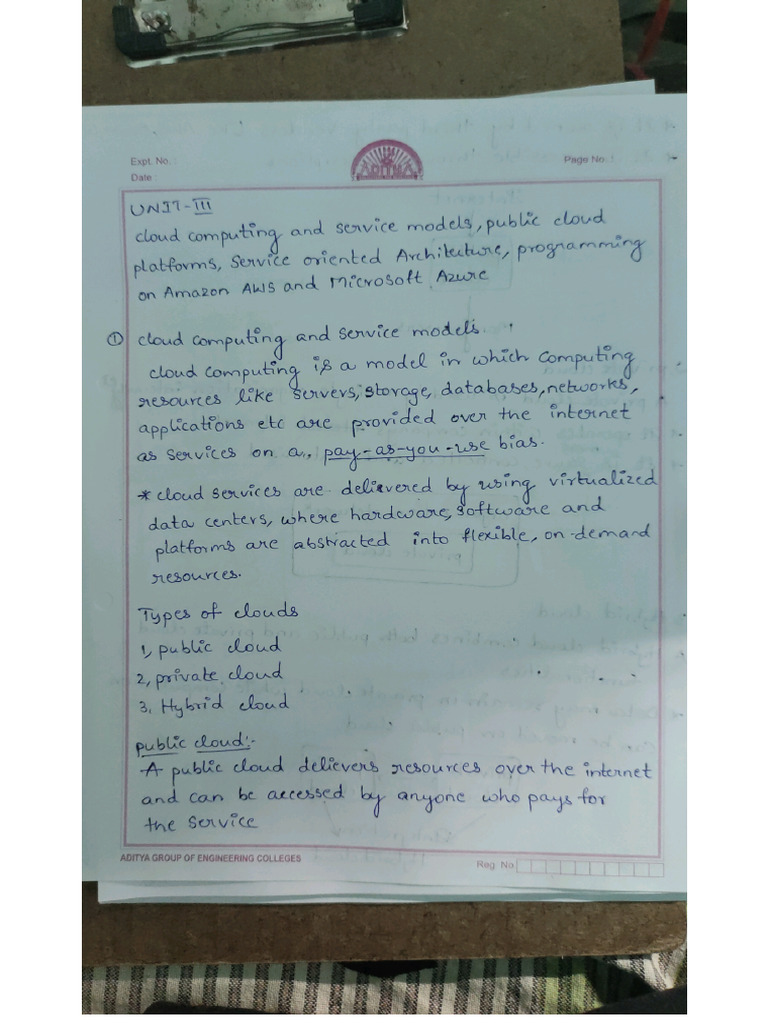 Expt. No. :
Date :
ADITYA
Page No. :
UNIT-III
cloud computing and service models, public cloud
platforms, Service oriented Architecture, programming
on Amazon AWS and Microsoft Azure
① cloud computing and service models.
cloud computing is a model in which computing
resources like servers, storage, databases, networks,
applications etc are provided over the internet
as services on a pay-as-you-use bias.
* cloud services are delievered by using virtualized
data centers, where hardware, software and
platforms are abstracted into flexible, on-demand
resources.
Types of clouds
1, public cloud
2, private cloud
3, Hybrid cloud
public cloud:-
A public cloud delievers resources over the internet
and can be accessed by anyone who pays for
the service
ADITYA GROUP OF ENGINEERING COLLEGES
Reg. No.